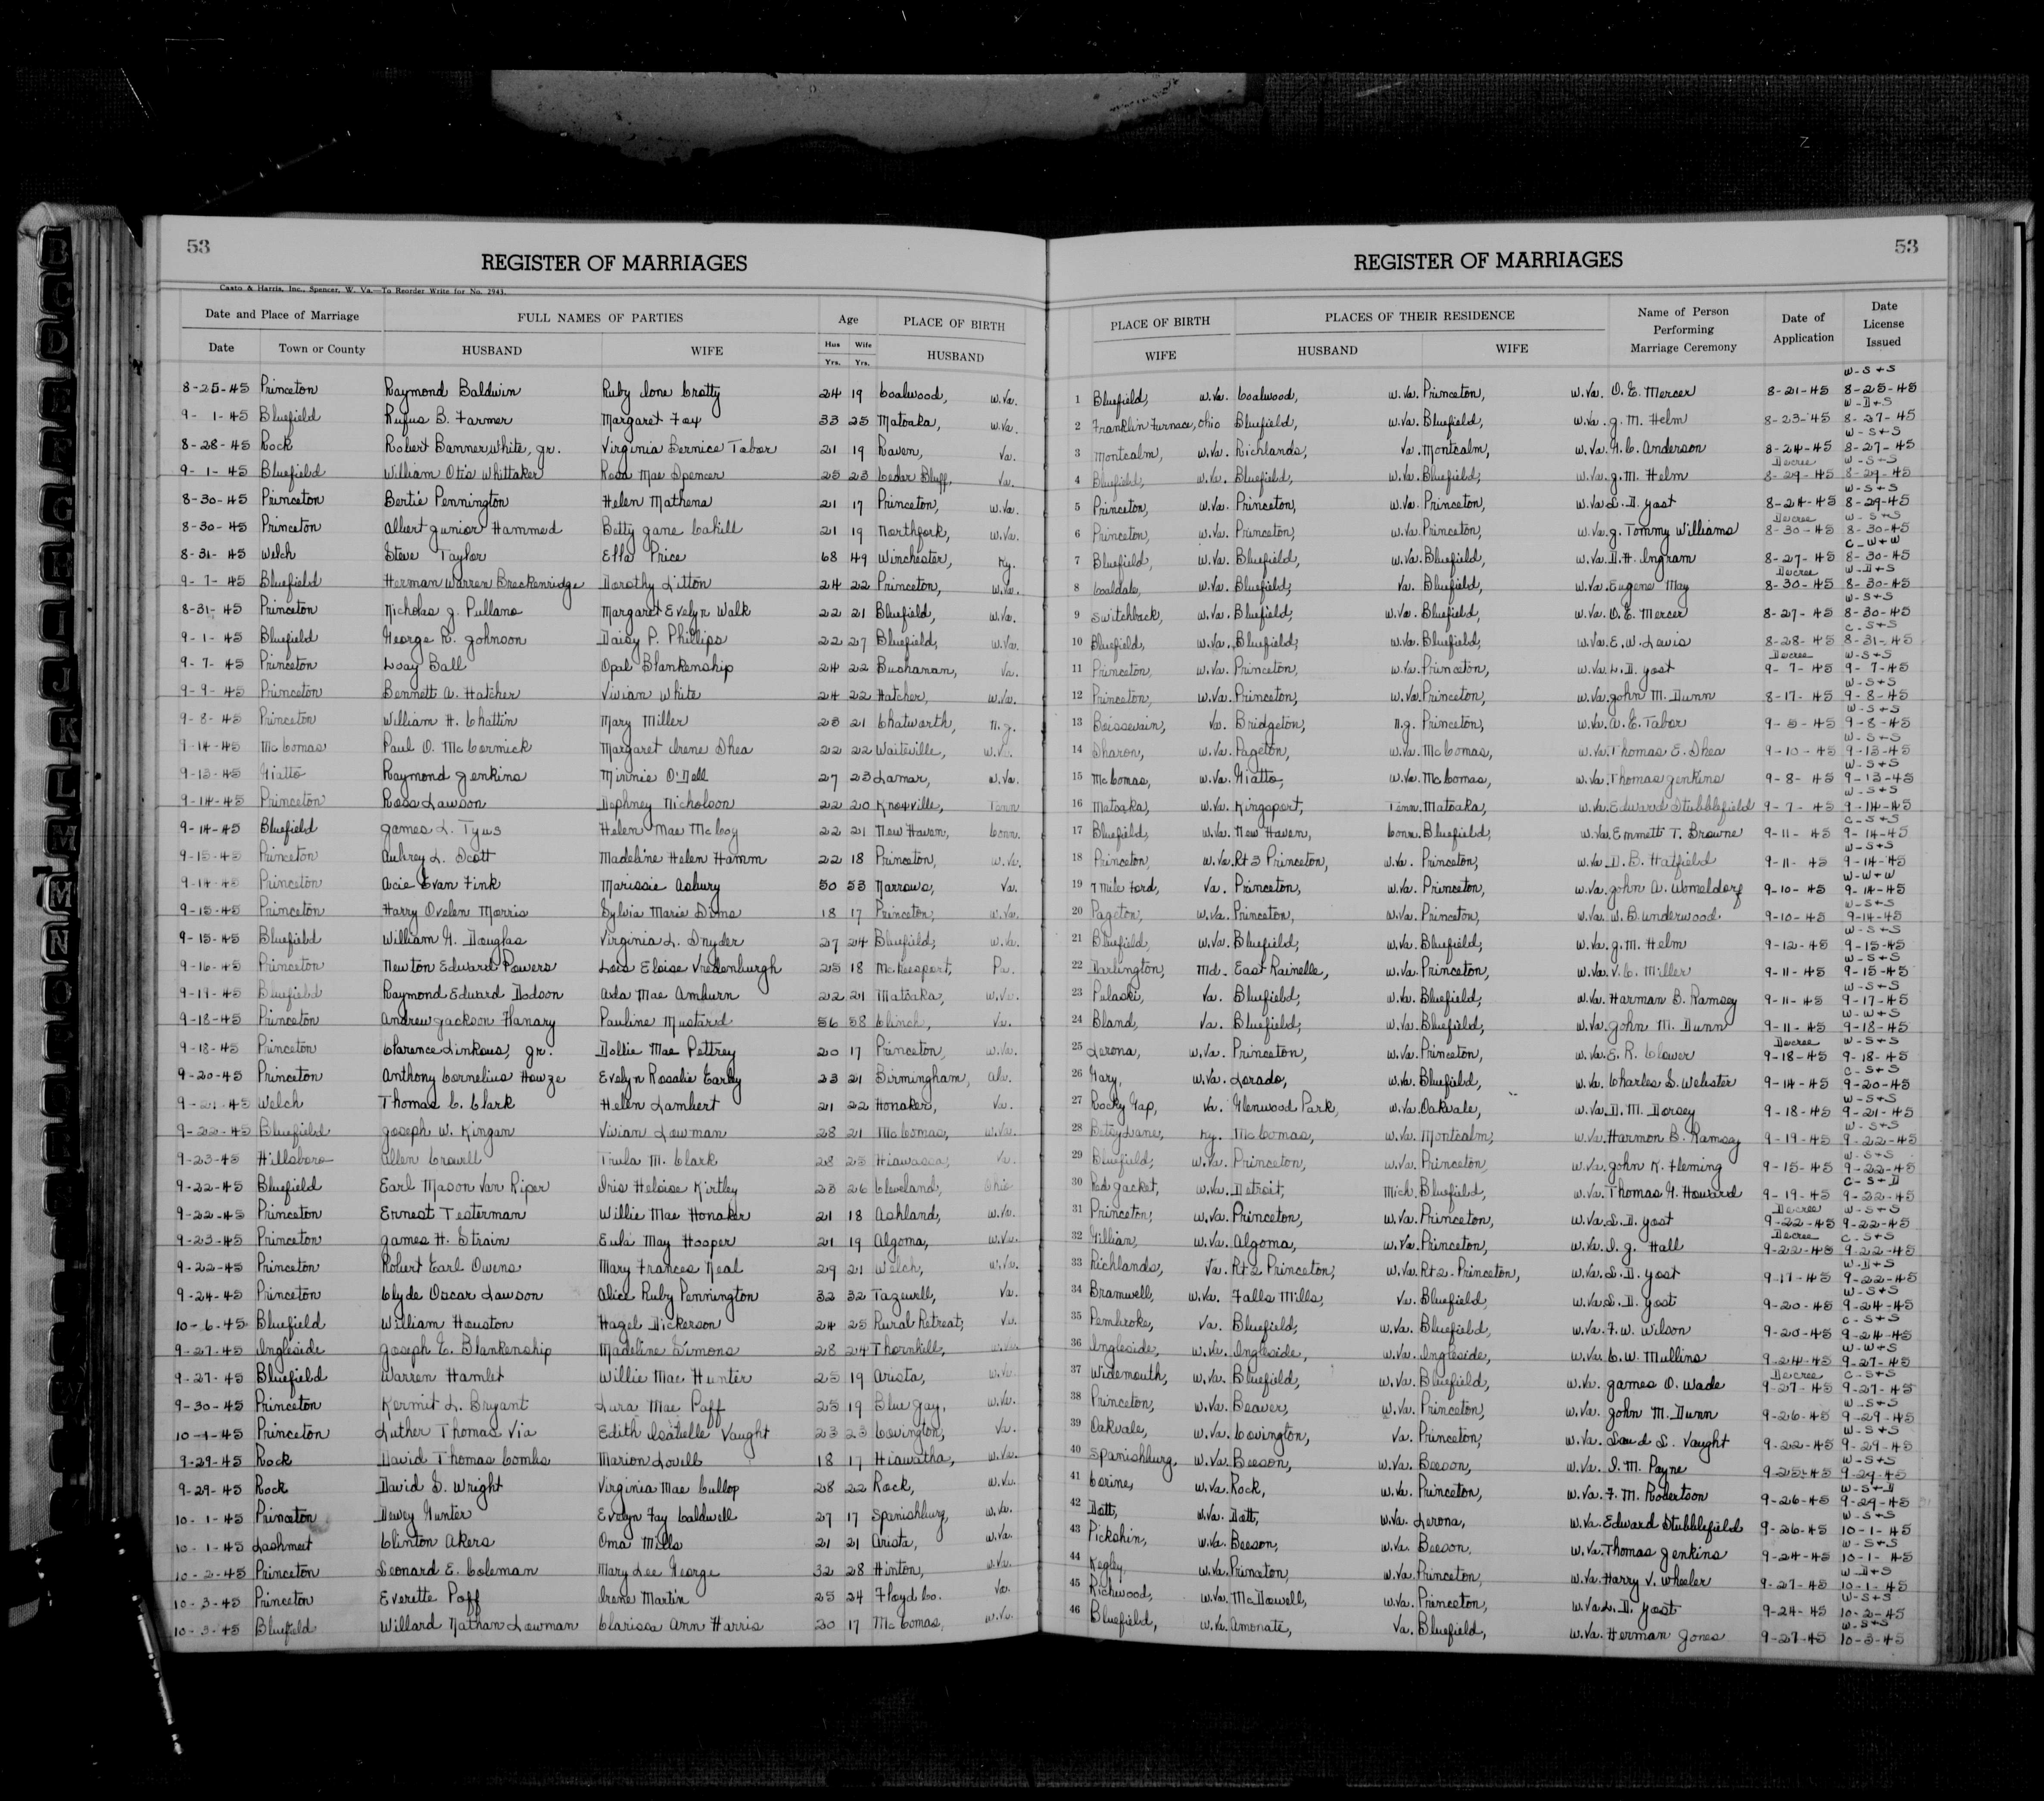 53
REGISTER OF MARRIAGES
Casto & Harris, Inc., Spencer, W. Va.—To Reorder Write for No. 2943.
Date and Place of Marriage FULL NAMES OF PARTIES Age PLACE OF BIRTH
Date Town or County HUSBAND WIFE Hus Wife HUSBAND
Yrs. Yrs.
8-25-45 Princeton Raymond Baldwin Ruby Ione Crotty 24 19 Coalwood, W.Va.
9-1-45 Bluefield Rufus B. Farmer Margaret Fox 33 25 Matoaka, W.Va.
8-28-45 Rock Robert Banner White, Jr. Virginia Bernice Tabor 21 19 Raven, Va.
9-1-45 Bluefield William Otis Whittaker Rosa Mae Spencer 25 23 Cedar Bluff, Va.
8-30-45 Princeton Bertie Pennington Helen Mathena 21 17 Princeton, W.Va.
8-30-45 Princeton Albert Junior Hammed Betty Jane Cahill 21 19 Northfork, W.Va.
8-31-45 Welch Steve Taylor Effa Price 68 49 Winchester, Ky.
9-7-45 Bluefield Herman Warren Breckenridge Dorothy Litton 24 22 Princeton, W.Va.
8-31-45 Princeton Nicholas J. Pullano Margaret Evelyn Walk 22 21 Bluefield, W.Va.
9-1-45 Bluefield George R. Johnson Daisy P. Phillips 22 27 Bluefield, W.Va.
9-7-45 Princeton Loay Ball Opal Blankenship 24 22 Buchanan, Va.
9-9-45 Princeton Bennett A. Hatcher Vivian White 24 22 Hatcher, W.Va.
9-8-45 Princeton William H. Chattin Mary Miller 25 21 Chatworth, N.J.
9-14-45 McComas Paul O. McCormick Margaret Irene Shea 22 22 Waiteville, W.Va.
9-13-45 Giatto Raymond Jenkins Minnie O'Dell 27 23 Lamar, W.Va.
9-14-45 Princeton Ross Lawson Daphney Nicholson 22 20 Knoxville, Tenn
9-14-45 Bluefield James L. Tyus Helen Mae McCoy 22 21 New Haven, Conn.
9-15-45 Princeton Aubrey L. Scott Madeline Helen Hamm 22 18 Princeton, W.Va.
9-14-45 Princeton Acie Evan Fink Marissie Asbury 50 53 Narrows, Va.
9-15-45 Princeton Harry Ovelen Morris Sylvia Marie Sims 18 17 Princeton, W.Va.
9-15-45 Bluefield William G. Douglas Virginia L. Snyder 27 24 Bluefield, W.Va.
9-16-45 Princeton Newton Edward Powers Lois Eloise Vredenburgh 25 18 McKeesport, Pa.
9-19-45 Bluefield Raymond Edward Dodson Ada Mae Amburn 22 21 Matoaka, W.Va.
9-18-45 Princeton Andrew Jackson Flanary Pauline Mustard 56 58 Clinch, Va.
9-18-45 Princeton Clarence Linkous, Jr. Dollie Mae Pettrey 20 17 Princeton, W.Va.
9-20-45 Princeton Anthony Cornelius Howze Evelyn Rosalie Early 23 21 Birmingham, Ala.
9-21-45 Welch Thomas C. Clark Helen Lambert 21 22 Honaker, Va.
9-22-45 Bluefield Joseph W. Kingan Vivian Lowman 28 21 McComas, W.Va.
9-23-45 Hillsboro Allen Crowell Trula M. Clark 28 25 Hiawassa, Va.
9-22-45 Bluefield Earl Mason Van Riper Iris Heloise Kirtley 23 26 Cleveland, Ohio
9-22-45 Princeton Ernest Testerman Willie Mae Honaker 21 18 Ashland, W.Va.
9-23-45 Princeton James H. Strain Eula May Hooper 21 19 Algoma, W.Va.
9-22-45 Princeton Robert Earl Owens Mary Frances Neal 29 21 Welch, W.Va.
9-24-45 Princeton Clyde Oscar Lawson Alice Ruby Pennington 32 32 Tazewell, Va.
10-6-45 Bluefield William Houston Hazel Dickerson 24 25 Rural Retreat, Va.
9-27-45 Ingleside Joseph E. Blankenship Madeline Simons 28 24 Thornhill, W.Va.
9-27-45 Bluefield Warren Hamlet Willie Mae Hunter 25 19 Arista, W.Va.
9-30-45 Princeton Kermit L. Bryant Lura Mae Paff 25 19 Blue Jay, W.Va.
10-1-45 Princeton Luther Thomas Via Edith Isabelle Vaught 23 23 Covington, Va.
9-29-45 Rock David Thomas Combs Marion Lovell 18 17 Hiawatha, W.Va.
9-29-45 Rock David S. Wright Virginia Mae Cullop 28 22 Rock, W.Va.
10-1-45 Princeton Dewey Gunter Evelyn Fay Caldwell 27 17 Spanishburg, W.Va.
10-1-45 Lashmeet Clinton Akers Oma Mills 21 21 Arista, W.Va.
10-2-45 Princeton Leonard E. Coleman Mary Lee George 32 28 Hinton, W.Va.
10-3-45 Princeton Everette Poff Irene Martin 25 24 Floyd Co. Va.
10-3-45 Bluefield Willard Nathan Lowman Clarissa Ann Harris 30 17 McComas, W.Va.
53
REGISTER OF MARRIAGES
PLACE OF BIRTH PLACES OF THEIR RESIDENCE Name of Person Performing Marriage Ceremony Date of Application Date License Issued
WIFE HUSBAND WIFE
W-S+S
1 Bluefield, W.Va. Coalwood, W.Va. Princeton, W.Va. O. E. Mercer 8-21-45 8-25-45
W-D+S
2 Franklin Furnace, Ohio Bluefield, W.Va. Bluefield, W.Va. J. M. Helm 8-23-45 8-27-45
W-S+S
3 Montcalm, W.Va. Richlands, Va. Montcalm, W.Va. G. C. Anderson 8-24-45 8-27-45
Decree W-S+S
4 Bluefield, W.Va. Bluefield, W.Va. Bluefield, W.Va. J. M. Helm 8-29-45 8-29-45
W-S+S
5 Princeton, W.Va. Princeton, W.Va. Princeton, W.Va. L. D. Yost 8-24-45 8-29-45
Decree W-S+S
6 Princeton, W.Va. Princeton, W.Va. Princeton, W.Va. J. Tommy Williams 8-30-45 8-30-45
C-W+W
7 Bluefield, W.Va. Bluefield, W.Va. Bluefield, W.Va. D. H. Ingram 8-27-45 8-30-45
Decree W-D+S
8 Coaldale, W.Va. Bluefield, Va. Bluefield, W.Va. Eugene May 8-30-45 8-30-45
W-S+S
9 Switchback, W.Va. Bluefield, W.Va. Bluefield, W.Va. O. E. Mercer 8-27-45 8-30-45
C-S+S
10 Bluefield, W.Va. Bluefield, W.Va. Bluefield, W.Va. E. W. Lewis 8-28-45 8-31-45
Decree W-S+S
11 Princeton, W.Va. Princeton, W.Va. Princeton, W.Va. L. D. Yost 9-7-45 9-7-45
W-S+S
12 Princeton, W.Va. Princeton, W.Va. Princeton, W.Va. John M. Dunn 8-17-45 9-8-45
W-S+S
13 Boissevain, Va. Bridgeton, N.J. Princeton, W.Va. A. E. Tabor 9-5-45 9-8-45
W-S+S
14 Sharon, W.Va. Pageton, W.Va. McComas, W.Va. Thomas E. Shea 9-10-45 9-13-45
W-S+S
15 McComas, W.Va. Giatto, W.Va. McComas, W.Va. Thomas Jenkins 9-8-45 9-13-45
W-S+S
16 Matoaka, W.Va. Kingsport, Tenn. Matoaka, W.Va. Edward Stubblefield 9-7-45 9-14-45
C-S+S
17 Bluefield, W.Va. New Haven, Conn. Bluefield, W.Va. Emmett T. Browne 9-11-45 9-14-45
W-S+S
18 Princeton, W.Va. Rt 3 Princeton, W.Va. Princeton, W.Va. D. B. Hatfield 9-11-45 9-14-45
W-W+W
19 7 Mile Ford, Va. Princeton, W.Va. Princeton, W.Va. John A. Womeldorf 9-10-45 9-14-45
W-S+S
20 Pageton, W.Va. Princeton, W.Va. Princeton, W.Va. W. B. Underwood. 9-10-45 9-14-45
W-S+S
21 Bluefield, W.Va. Bluefield, W.Va. Bluefield, W.Va. J. M. Helm 9-12-45 9-15-45
W-S+S
22 Darlington, Md. East Rainelle, W.Va. Princeton, W.Va. V. C. Miller 9-11-45 9-15-45
W-S+S
23 Pulaski, Va. Bluefield, W.Va. Bluefield, W.Va. Harman B. Ramsey 9-11-45 9-17-45
W-W+S
24 Bland, Va. Bluefield, W.Va. Bluefield, W.Va. John M. Dunn 9-11-45 9-18-45
Decree W-S+S
25 Lerona, W.Va. Princeton, W.Va. Princeton, W.Va. E. R. Clower 9-18-45 9-18-45
C-S+S
26 Gary, W.Va. Lorado, W.Va. Bluefield, W.Va. Charles S. Webster 9-14-45 9-20-45
W-S+S
27 Rocky Gap, Va. Glenwood Park, W.Va. Oakvale, W.Va. D. M. Dorsey 9-18-45 9-21-45
W-S+S
28 Betsy Lane, Ky. McComas, W.Va. Montcalm, W.Va. Harmon B. Ramsey 9-19-45 9-22-45
W-S+S
29 Bluefield, W.Va. Princeton, W.Va. Princeton, W.Va. John K. Fleming 9-15-45 9-22-45
C-S+D
30 Red Jacket, W.Va. Detroit, Mich. Bluefield, W.Va. Thomas G. Howard 9-19-45 9-22-45
Decree W-S+S
31 Princeton, W.Va. Princeton, W.Va. Princeton, W.Va. L. D. Yost 9-22-45 9-22-45
Decree C-S+S
32 Gillian, W.Va. Algoma, W.Va. Princeton, W.Va. S. J. Hall 9-22-45 9-22-45
W-D+S
33 Richlands, Va. Rt 2 Princeton, W.Va. Rt 2-Princeton, W.Va. L. D. Yost 9-17-45 9-22-45
W-S+S
34 Bramwell, W.Va. Falls Mills, Va. Bluefield, W.Va. L. D. Yost 9-20-45 9-24-45
C-S+S
35 Pembroke, Va. Bluefield, W.Va. Bluefield, W.Va. F. W. Wilson 9-20-45 9-24-45
W-W+S
36 Ingleside, W.Va. Ingleside, W.Va. Ingleside, W.Va. C. W. Mullins 9-24-45 9-27-45
Decree C-S+S
37 Widemouth, W.Va. Bluefield, W.Va. Bluefield, W.Va. James O. Wade 9-27-45 9-27-45
W-S+S
38 Princeton, W.Va. Beaver, W.Va. Princeton, W.Va. John M. Dunn 9-26-45 9-29-45
W-S+S
39 Oakvale, W.Va. Covington, Va. Princeton, W.Va. S. Vaught 9-22-45 9-29-45
W-S+S
40 Spanishburg, W.Va. Beeson, W.Va. Beeson, W.Va. I. M. Payne 9-25-45 9-29-45
W-S+D
41 Corine, W.Va. Rock, W.Va. Princeton, W.Va. F. M. Robertson 9-26-45 9-29-45
W-S+S
42 Dott, W.Va. Dott, W.Va. Lerona, W.Va. Edward Stubblefield 9-26-45 10-1-45
W-S+S
43 Pickshin, W.Va. Beeson, W.Va. Beeson, W.Va. Thomas Jenkins 9-24-45 10-1-45
W-D+S
44 Kegley, W.Va. Princeton, W.Va. Princeton, W.Va. Harry V. Wheeler 9-27-45 10-1-45
W-S+S
45 Richwood, W.Va. McDowell, W.Va. Princeton, W.Va. L. D. Yost 9-24-45 10-2-45
W-S+S
46 Bluefield, W.Va. Amonate, Va. Bluefield, W.Va. Herman Jones 9-27-45 10-3-45
B
C
D
E
F
G
H
I
J
K
L
M
Mc
N
O